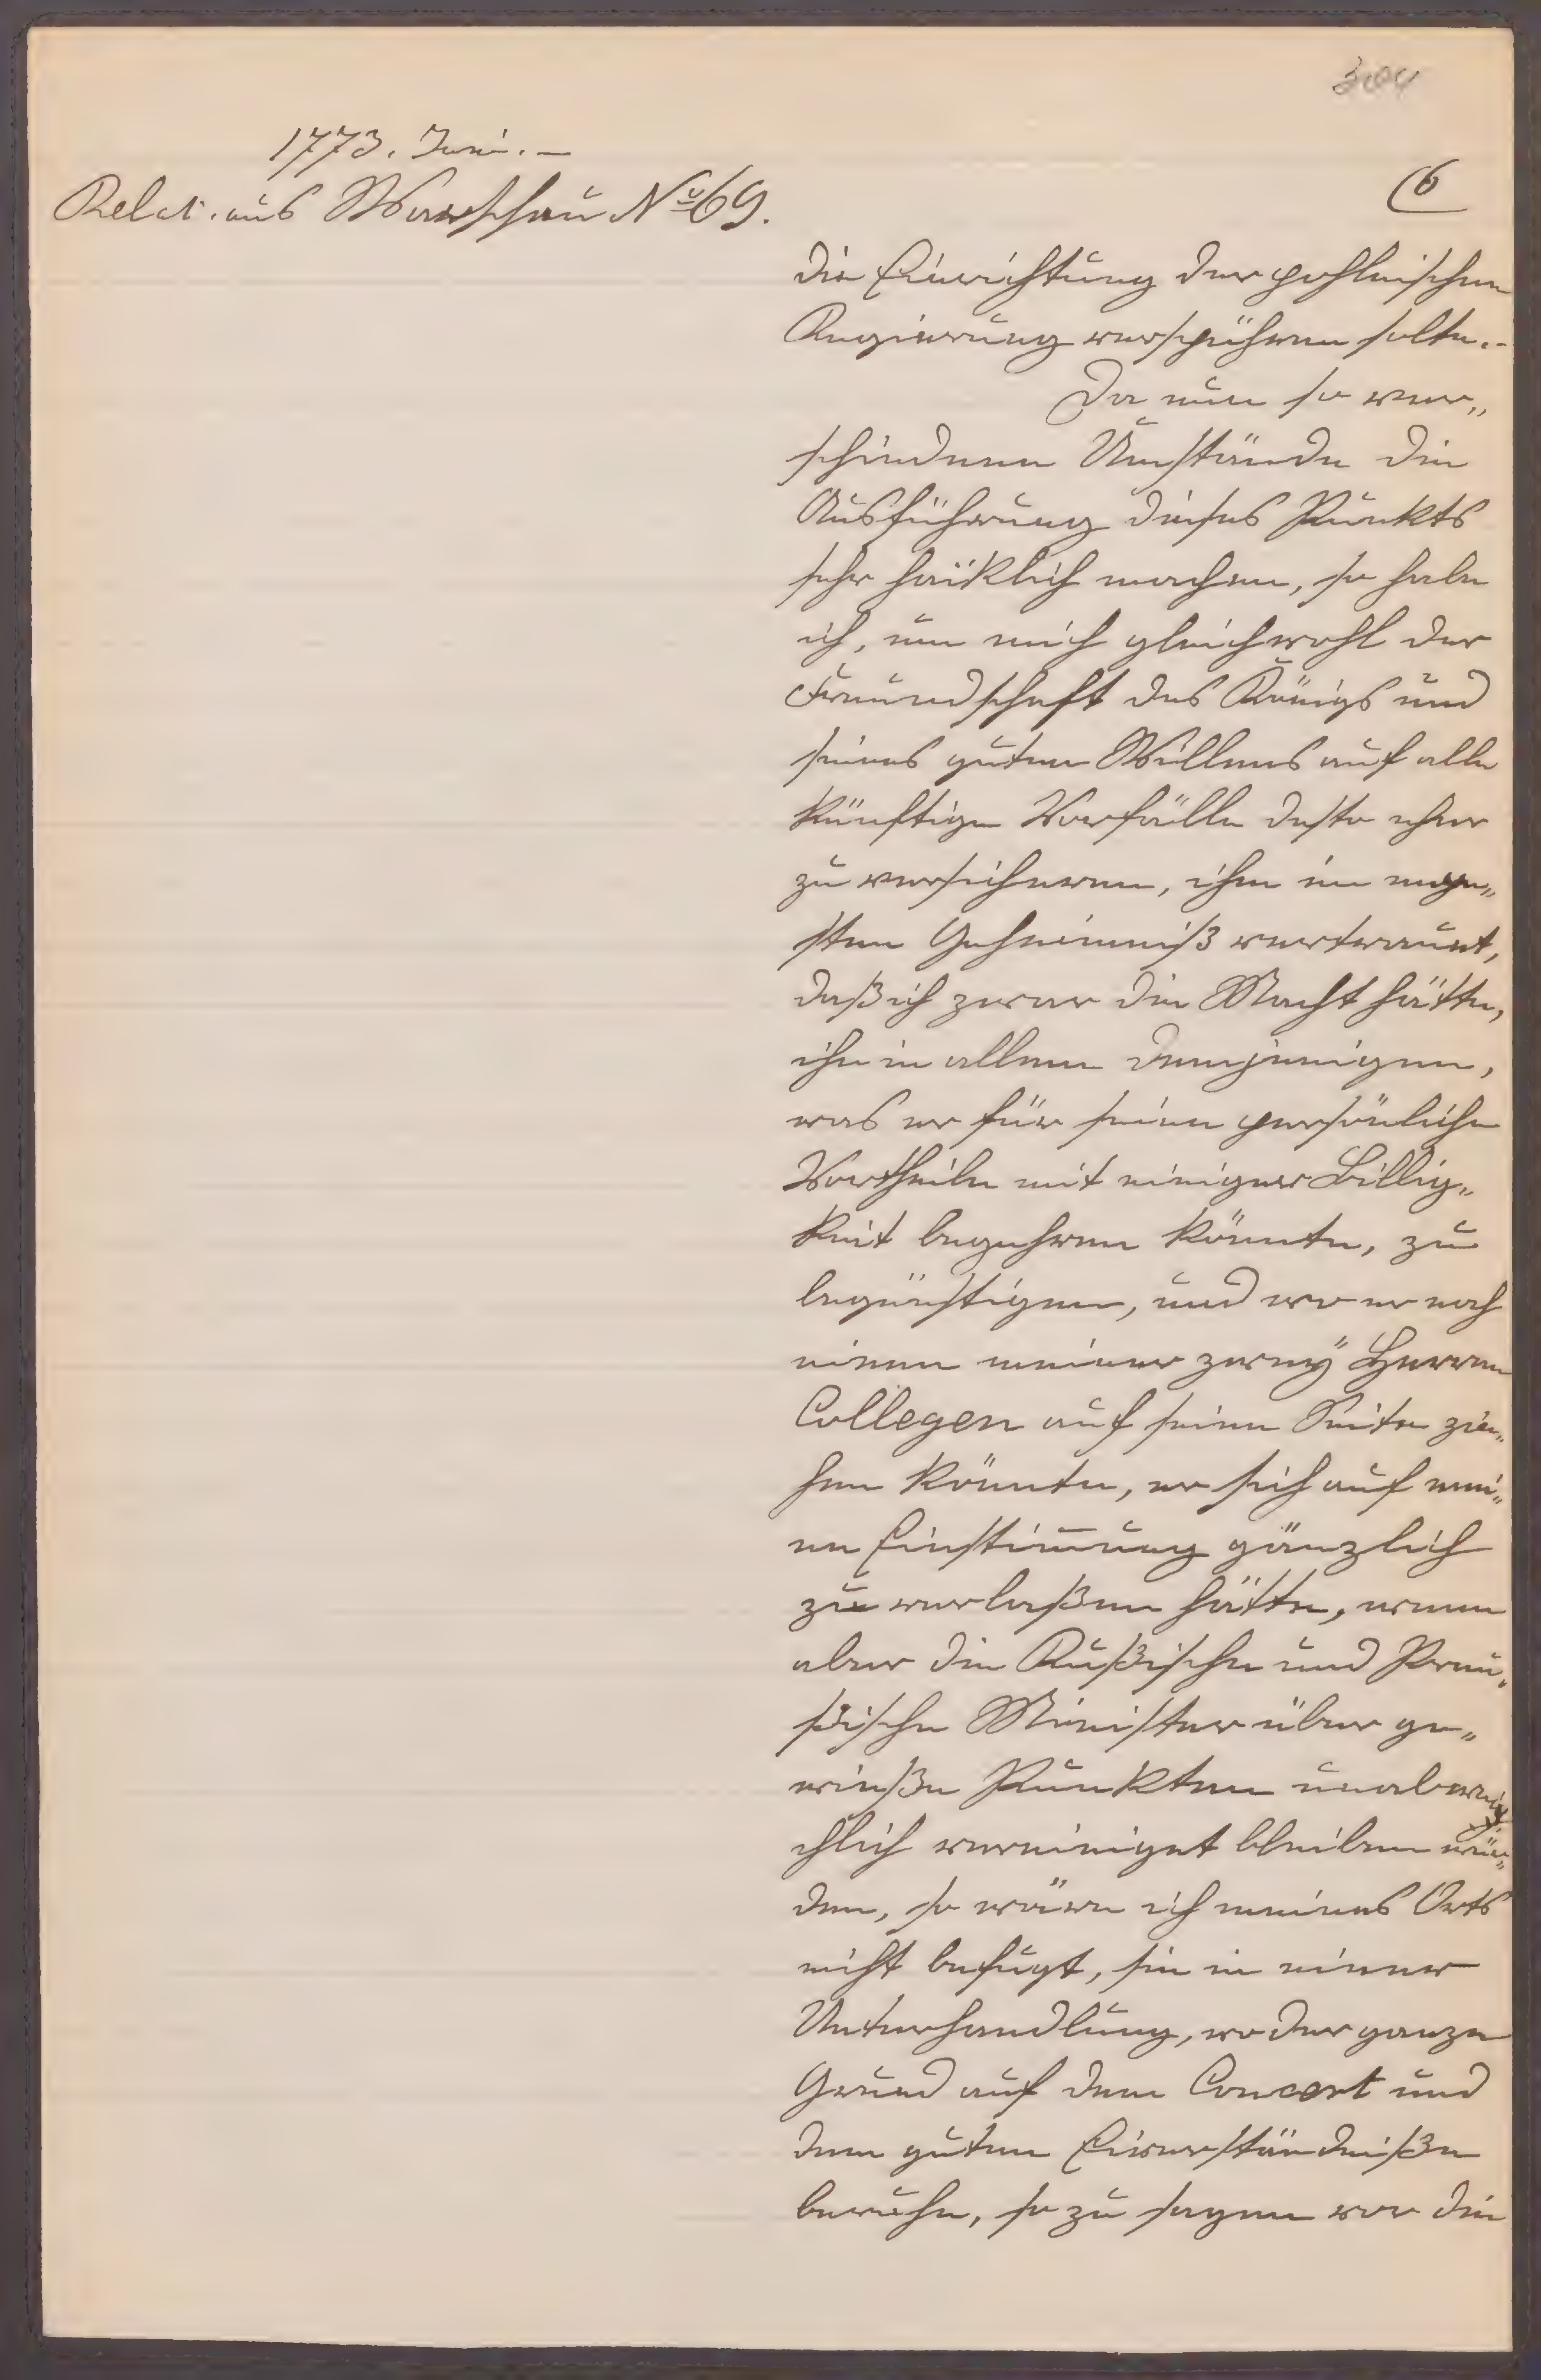 304
1773. Juni. —
Relat. aus Warschau No 69.
6
die Einrichtung der pohlnischen
Regierung verspühren solte. -
Da nun so ver„
schiedene Umstände die
Ausführung dieses Punkts
sehr haiklich machen, so habe
ich, um mich gleichwohl der
Freundschaft des Königs und
seines guten Willens auf alle
künftige Vorfälle desto eher
zu versicheren, ihm im enge„
sten Geheimniß vertrauet,
daß ich zwar die Macht hätte,
ihn in allem demjenigen,
was er für seine persönliche
Vortheile mit einiger Billig„
keit begehren könnte, zu
begünstigen, und wo er noch
einen meiner zwey Herren
Collegen auf seine Seite zie„
hen könnte, er sich auf mei„
ne Einstim̄ung gänzlich
zu verlaßen hätte, wenn
aber die Rußische und Preu„
ßische Minister über ge„
wieße Punkten unabwei„
chlich vereiniget bleiben wür„
den, so wäre ich meines Orts
nicht befugt, sie in einer
Unterhandlung, wo der ganze
Grund auf dem Concert und
dem guten Einverständniße
beruhe, so zu sagen vor die